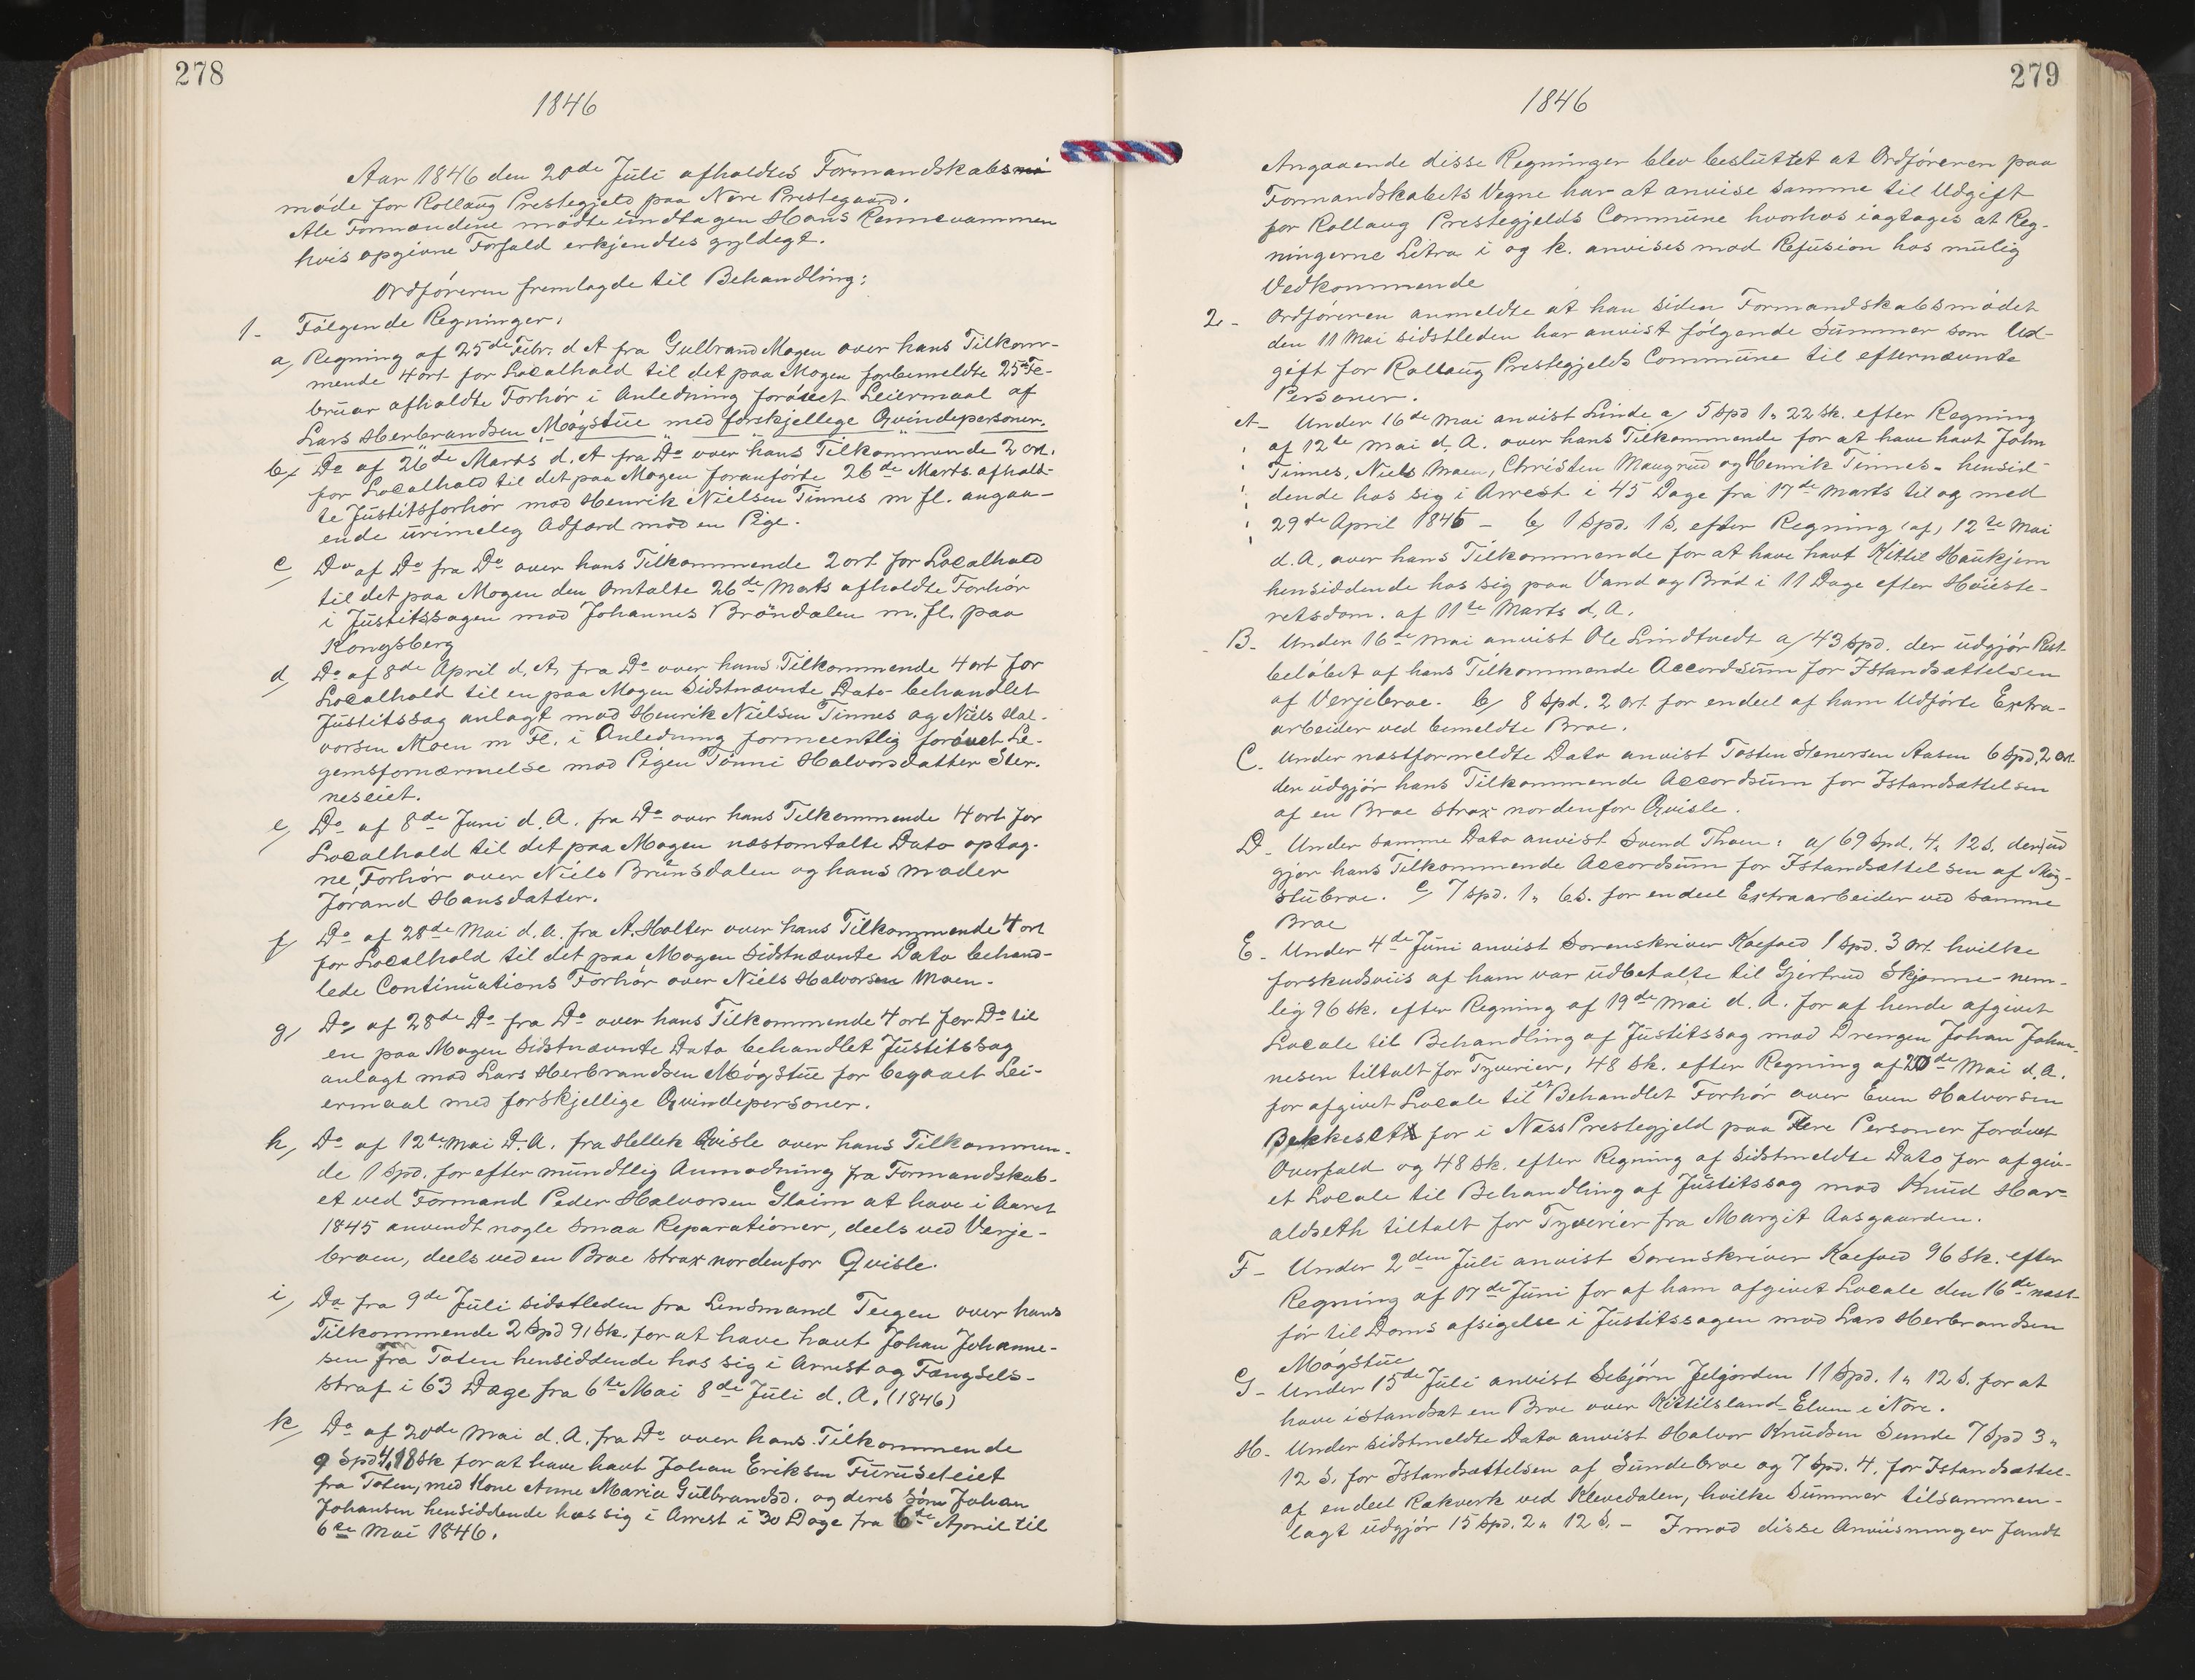 278
1846
Aar 1846 den 20de Juli afholdtes Formandskabsmö
möde for Rollaug Prestegjeld paa Nore Prestegaard.
Ale Formændene mödte undtagen Hans Rennevammen
hvis opgivne Forfald erkjendtes gyldegt.
Ordföreren fremlagde til Behandling:
1- Fölgende Regninger:
a, Regning af 25de Febr. d A fra Gulbrand Mogen over hans Tilkom-
mende 4 ort for Localhold til det paa Mogen forbemeldte 25de Fe-
bruar afholdte Forhör i Anledning foröuet Leiermaal af
Lars Herbrandsen Mögstue med forskjellege Qvindepersoner.
b, Do af 26de Marts d. A fra Do over hans Tilkommende 2 ort.
for Localhold til det paa Mogen foranförte 26de Marts afhold-
te Justitsforhör mod Henrik Nielsen Tinnes m fl. angaa-
ende urimeleg Adfærd mod en Pige.
c, Do af Do fra Do over hans Tilkommende 2 ort for Localhold
til det paa Mogen den Omtalte 26de Marts afholdte Forhör
i Justitssagen mod Johannes Bröndalen m. fl. paa
Kongsberg
d, Do af 8de April d. A. fra Do over hans Tilkommende 4 ort for
Localhold til en paa Mogen Sidstnævnte Dato behandlet
Justitssag anlagt mod Henrik Nielsen Tinnes og Niels Hal-
vorsen Moen m Fl. i Anledning formeentlig foröuet Le-
gemsfornærmelse mod Pigen Tönni Halvorsdatter Ster-
neseiet.
e, Do af 8de Juni d. A. fra Do over hans Tilkommende 4 ort for
Localhold til det paa Mogen næstomtalte Dato optag-
ne Forhör over Niels Brunsdalen og hans Moder
Jorand Hansdatter.
f, Do af 28de Mai d. a. fra A. Holter over hans Tilkommende 4 ort
for Localhold til det paa Mogen Sidstnævnte Dato behand-
lede Continuations Forhör over Niels Halvorsen Moen.
g, Do af 28de Do fra Do over hans Tilkommende 4 ort for Do til
en paa Mogen Sidstnævnte Dato behandlet Justitssag
anlagt mod Lars Herbrandsen Mögstue for begaaet Lei-
ermaal med forskjellige Qvindepersoner.
h, Do af 12te Mai D. A. fra Hellek Qvisle over hans Tilkommen-
de 1 Spd. for efter mündtlig Anmodning fra Formandskab-
et ved Formand Peder Halvorsen Glaim at have i Aaret
1845 anvendt nogle Smaa Reparationer, deels ved Verje-
broen, deels ved en Broe strax nordenfor Qvisle.
i, Do fra 9de Juli sidstleden fra Lensmand Teigen over hans
Tilkommende 2 Spd 91 Sk. for at have havt Johan Johanne-
sen fra Toten hensiddende hos sig i Arrest og Fængsels-
straf i 63 Dage fra 6te Mai 8de Juli d. A. (1846)
k, Do af 20de Mai d. A. fra Do over hans Tilkommende
9 Spd 4, 18 Sk for at have havt Johan Eriksen Furuseteiet
fra Toten, med Kone Anne Maria Gulbrandsd. og deres Sön Johan
Johansen hensiddende hos sig i Arrest i 30 Dage fra 6te April til
6te Mai 1846.
279
1846
Angaaende disse Regninger blev besluttet at Ordföreren paa
Formandskabets Vegne har at anvise Samme til Udgift
for Rollaug Prestegjelds Commune hvorhos iagtages at Reg-
ningerne Litra i og k. anvises mod Refusion hos mulig
Vedkommende
2- Ordföreren anmeldte at han siden Formandskabsmödet
den 11 Mai sidstleden har anvist fölgende Summer som Ud-
gift for Rollaug Prestegjelds Commune til efternævnte
Personer.
A- Under 16de Mai anvist Linde a/ 5 Spd 1" 22 sk. efter Regning
af 12te Mai d. A. over hans Tilkommende for at have havt John
Tinnes, Niels Moen, Christen Maugrud og Henrik Tinnes - hensid-
dende hos sig i Arrest i 45 Dage fra 17de Marts til og med
29de April 1846 - b, 1 Spd. 1 S. efter Regning (af) 12te Mai
d. A. over hans Tilkommende for at have havt Kittil Haukjem
hensiddende hos sig paa Vand og Bröd i 11 Dage efter Höieste-
retsdom. af 11te Marts d. A.
B- Under 16de Mai anvist Ole Lindtvedt a/ 43 Spd. der udgjör Rest-
belöbet af hans Tilkommende Accordsum for Istandsættelsen
af Verjebroe. b, 8 Spd. 2 ort. for endeel af ham Udförte Extra-
arbeider ved bemeldte Broe.
C- Under næstformeldte Dato anvist Tosten Stenersen Aasen 6 Spd. 2 ort
der udgjör hans Tilkommende Accordsum for Istandsættelsen
af en Broe strax nordenfor Qvisle.
D- Under Samme Dato anvist Svend Thoen: a/ 69 Spd. 4, 12 S. der ud
gjör hans Tilkommende Accordsum for Istandsættelsen af Mög-
stubroe. 7 Spd. 1" 6 S. for endeel Extraarbeider ved samme
Broe
E- Under 4de Juni anvist Sorenskriver Koefoed 1 Spd. 3 Ort. hvilke
forskudsviis af ham var udbetalte til Gjertrud Skjønne - nem-
lig 96 sk. efter Regning af 19de Mai d. A. for af hende afgivet
Locale til Behandling af Justitssag mod Drengen Johan Johan-
nesen tiltalt for Tyverier, 48 Sk. efter Regning af 20de Mai d. A.
for afgivet Locale til et Behandlet Forhör over Even Halvorsen
Bekkeseth for i Næss Prestegjeld paa Flere Personer foröuet
Overfald og 48 Sk. efter Regning af Sidstmeldte Dato for afgiv-
et Locale til Behandling af Justitssag mod Knud Har-
aldseth tiltalt for Tyverier fra Margit Aasgaarden.
F- Under 2den Juli anvist Sorenskriver Koefoed 96 Sk. efter
Regning af 17de Juni for af ham afgivet Locale den 16de næst-
för til Doms afsigelse i Justitssagen mod Lars Herbrandsen
Mögstue
G- Under 15de Juli anvist Sebjörn Jelgorden 11 Spd. 1" 12 S. for at
have istandsat en Broe over Kittilsland-Elven i Nore.
H- Under Sidstmeldte Dato anvist Halvor Knudsen Sunde 7 Spd 3"
12 S. for Istandsættelsen af Sundebroe og 7 Spd. 4, for Istandsættel-
af endeel Rækverk ved Klevedalen, hvilke Summer tilsammen-
lagt udgjör 15 Spd. 2" 12 S. - Imod disse Anviisninger fandt